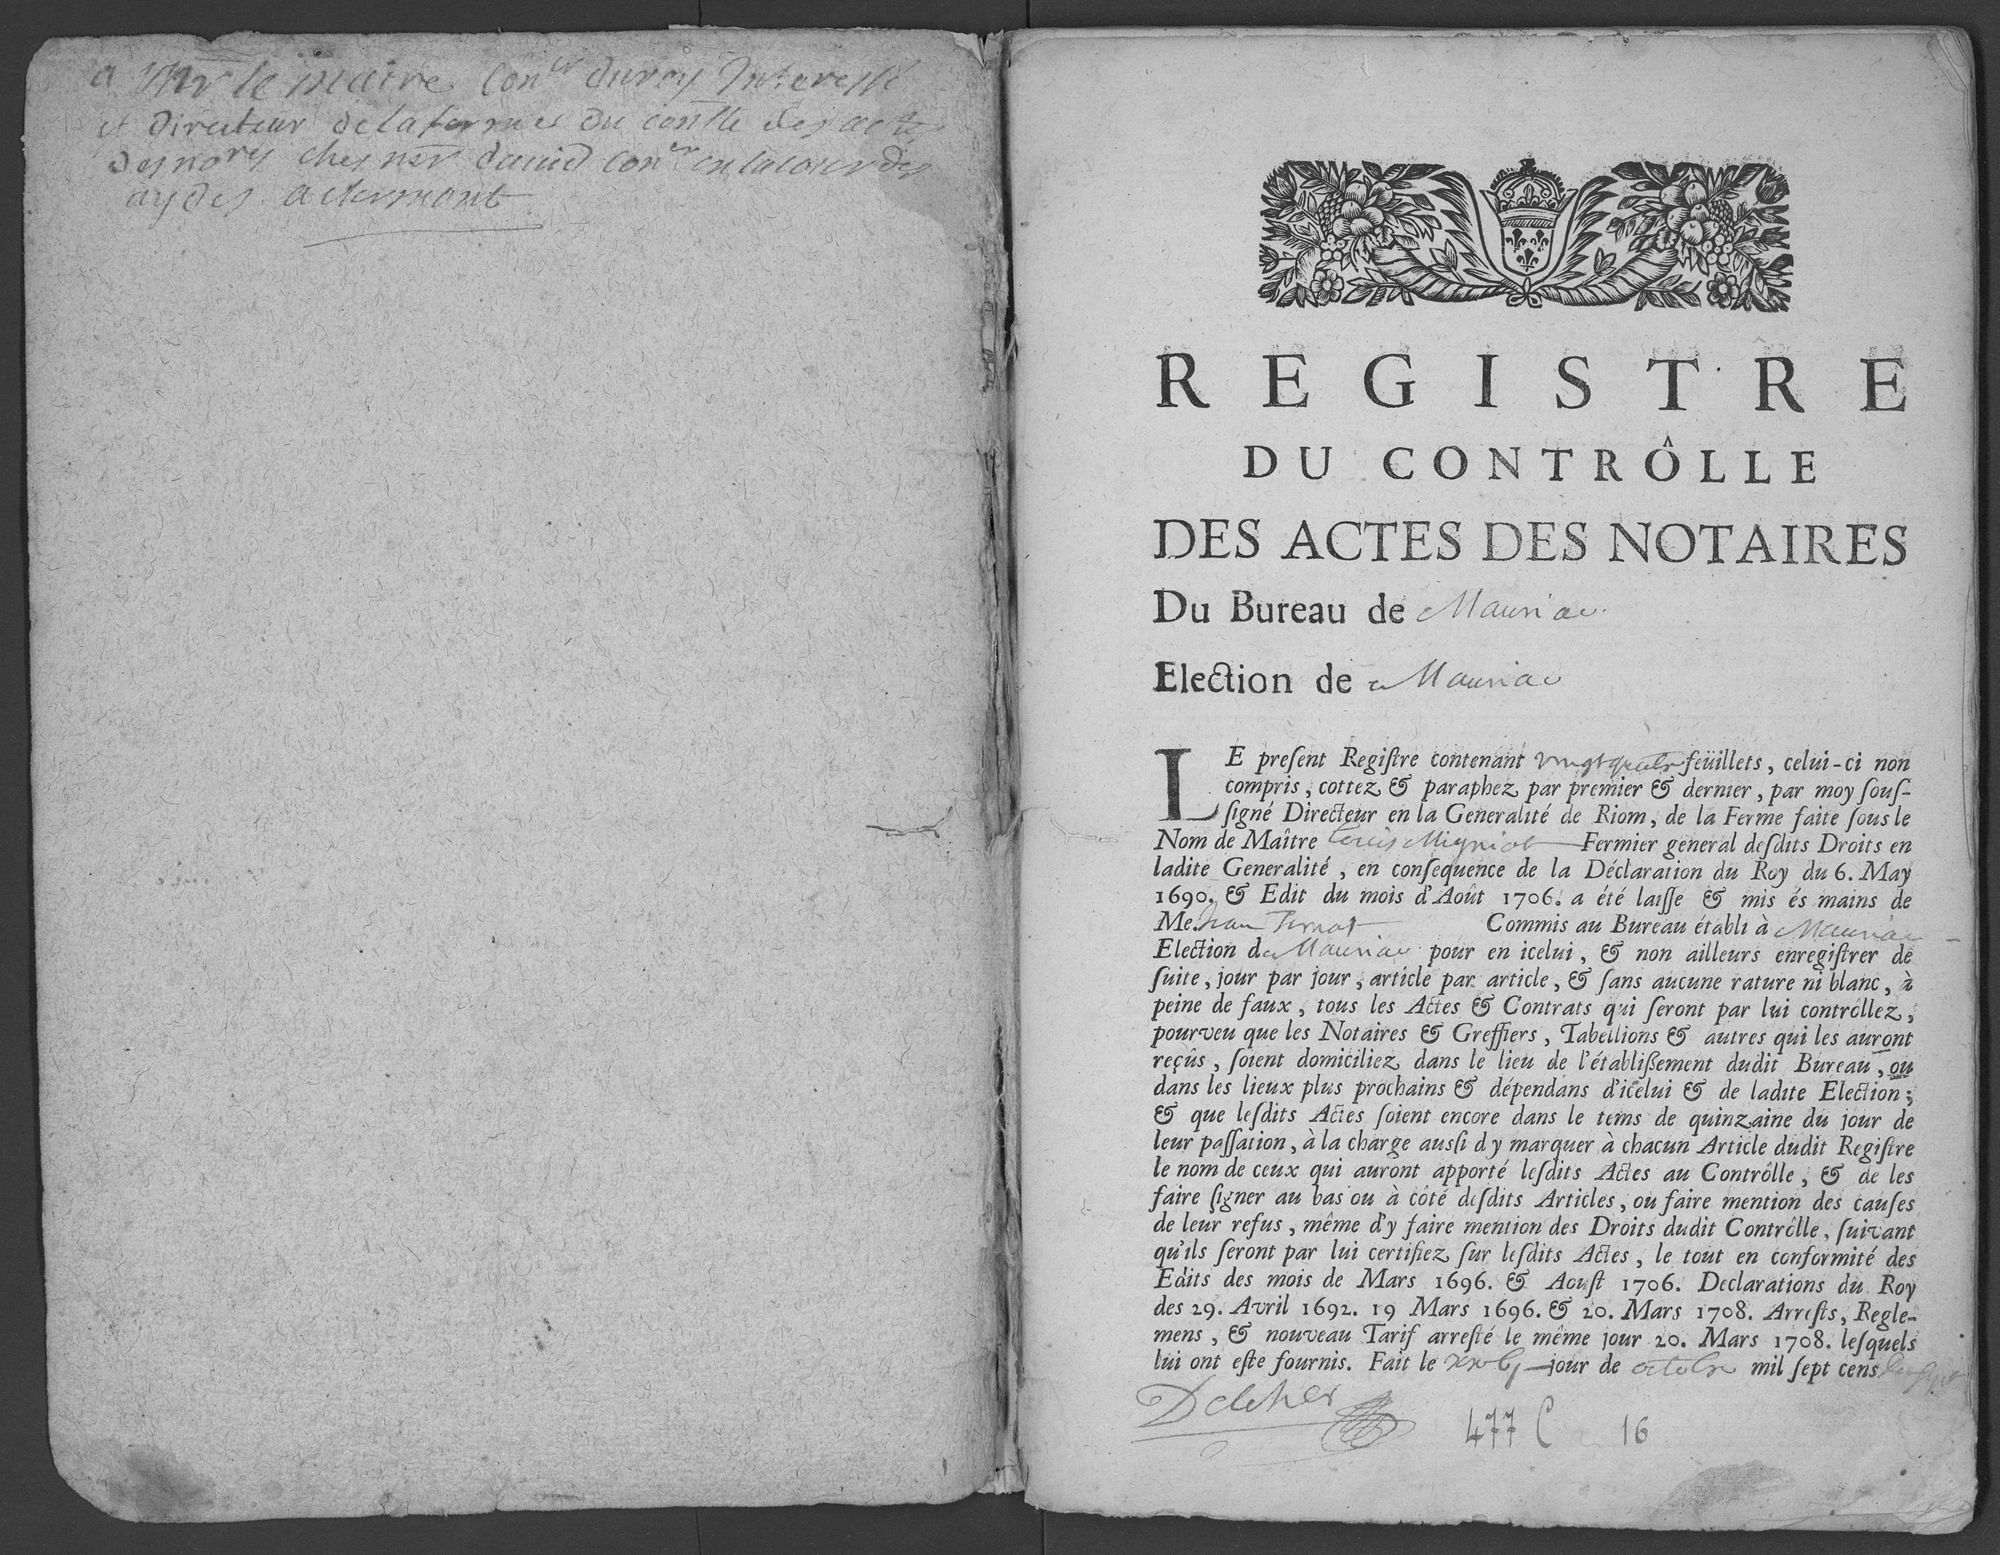 a Mr le maire con.er du roy Interessé
et directeur de la ferme du con.lle des actes
des no.res ches mr david con.er en la cour des
aydes a clermont
REGISTRE
DU CONTRÔLLE
DES ACTES DES NOTAIRES
Du Bureau de Mauriac
Election de Mauriac
LE preſent Regiſtre contenant vingt quatre feüillets, celui-ci non
compris, cottez & paraphez par premier & dernier, par moy ſouſ-
ſigné Directeur en la Generalité de Riom, de la Ferme faite ſous le
Nom de Maître Fermier general deſdits Droits en
ladite Generalité, en conſequence de la Déclaration du Roy du 6. May
1690. & Edit du mois d'Août 1706. a été laiſſe & mis és mains de
Me. Jean Commis au Bureau établi à Mauriac
Election de Mauriac pour en icelui, & non ailleurs enregiſtrer de
ſuite, jour par jour, article par article, & ſans aucune rature ni blanc, à
peine de faux, tous les Actes & Contrats qui ſeront par lui contrôllez,
pourveu que les Notaires & Greffiers, Tabellions & autres qui les auront
reçûs, ſoient domiciliez dans le lieu de l'établiſſement dudit Bureau, ou
dans les lieux plus prochains & dépendans d'icelui & de ladite Election;
& que leſdits Actes ſoient encore dans le tems de quinzaine du jour de
leur paſſation, à la charge auſſi d'y marquer à chacun Article dudit Regiſtre
le nom de ceux qui auront apporté leſdits Actes au Contrôlle, & de les
faire ſigner au bas ou à côté deſdits Articles, ou faire mention des cauſes
de leur refus, même d'y faire mention des Droits dudit Contrôlle, ſuivant
qu'ils ſeront par lui certifiez ſur leſdits Actes, le tout en conformité des
Edits des mois de Mars 1696. & Aouſt 1706. Declarations du Roy
des 29. Avril 1692. 19 Mars 1696. & 20. Mars 1708. Arreſts, Regle-
mens, & nouveau Tarif arreſté le même jour 20. Mars 1708. leſquels
lui ont eſte fournis. Fait le jour de octobre mil ſept cens
Delcher
477 C 16